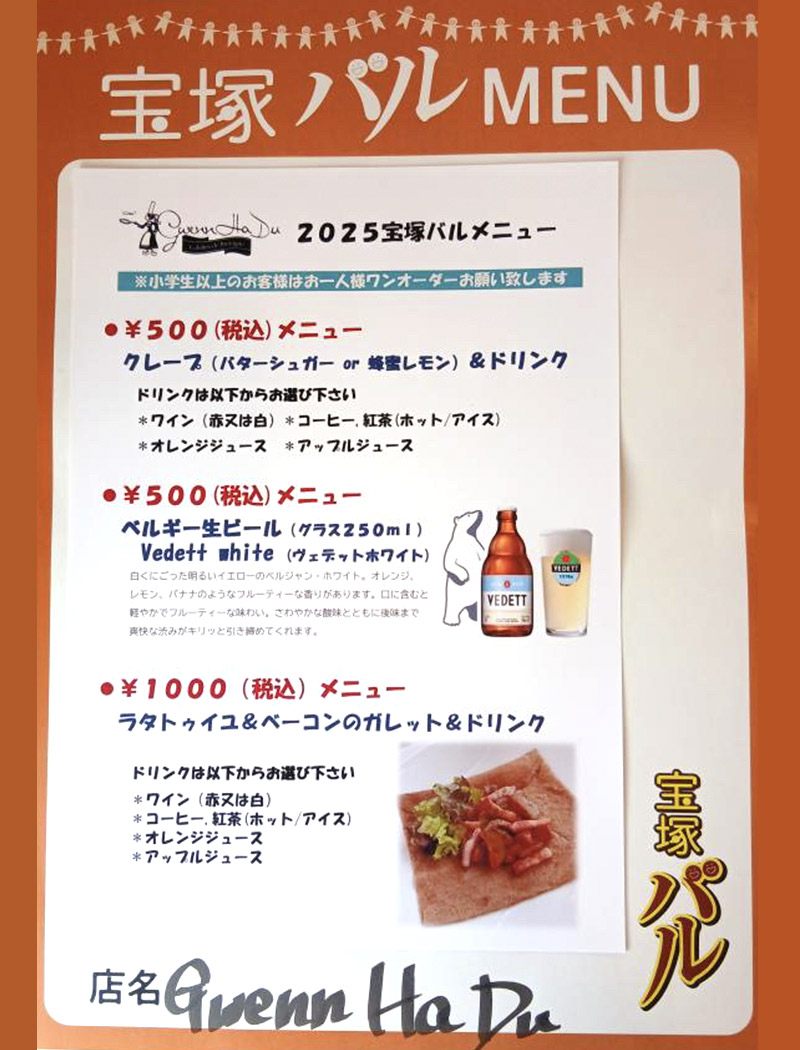 宝塚バルMENU
Gwenn Ha Du 2025宝塚バルメニュー
※小学生以上のお客様はお一人様ワンオーダーお願い致します
●¥500(税込)メニュー
クレープ(バターシュガー or 蜂蜜レモン)&ドリンク
ドリンクは以下からお選び下さい
*ワイン(赤又は白)*コーヒー,紅茶(ホット/アイス)
*オレンジジュース *アップルジュース
●¥500(税込)メニュー
ベルギー生ビール(グラス250ml)
Vedett white(ヴェデットホワイト)
白くにごった明るいイエローのベルジャン・ホワイト。オレンジ、
レモン、バナナのようなフルーティーな香りがあります。口に含むと
軽やかでフルーティーな味わい。さわやかな酸味とともに後味まで
爽快な渋みがキリッと引き締めてくれます。
VEDETT
VEDETT
EXTRA
●¥1000(税込)メニュー
ラタトゥイユ&ベーコンのガレット&ドリンク
ドリンクは以下からお選び下さい
*ワイン(赤又は白)
*コーヒー,紅茶(ホット/アイス)
*オレンジジュース
*アップルジュース
宝塚バル
店名 Gwenn Ha Du